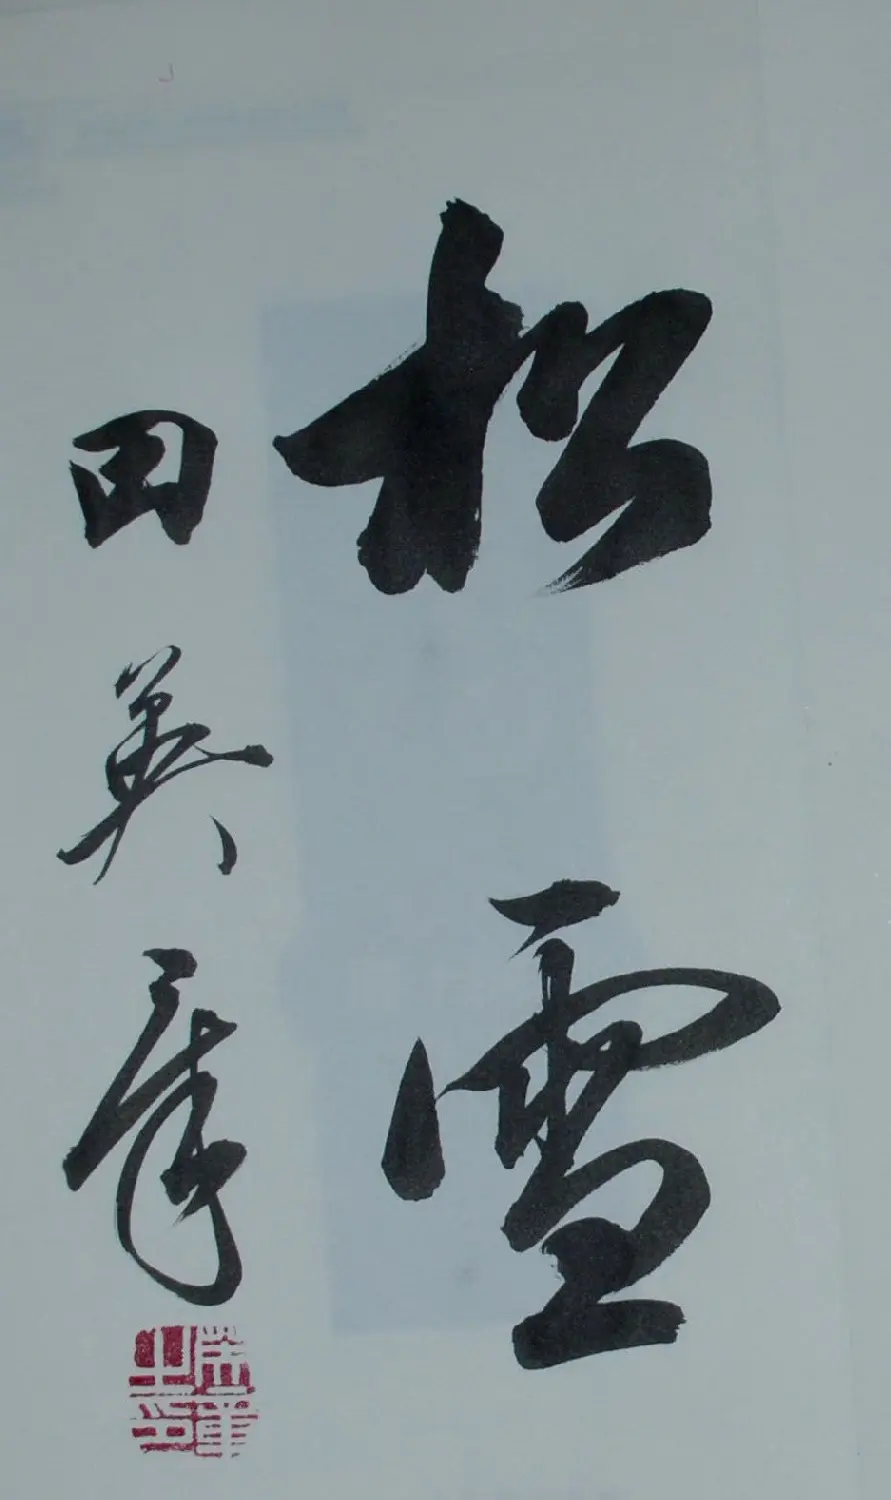 松雪
田英章